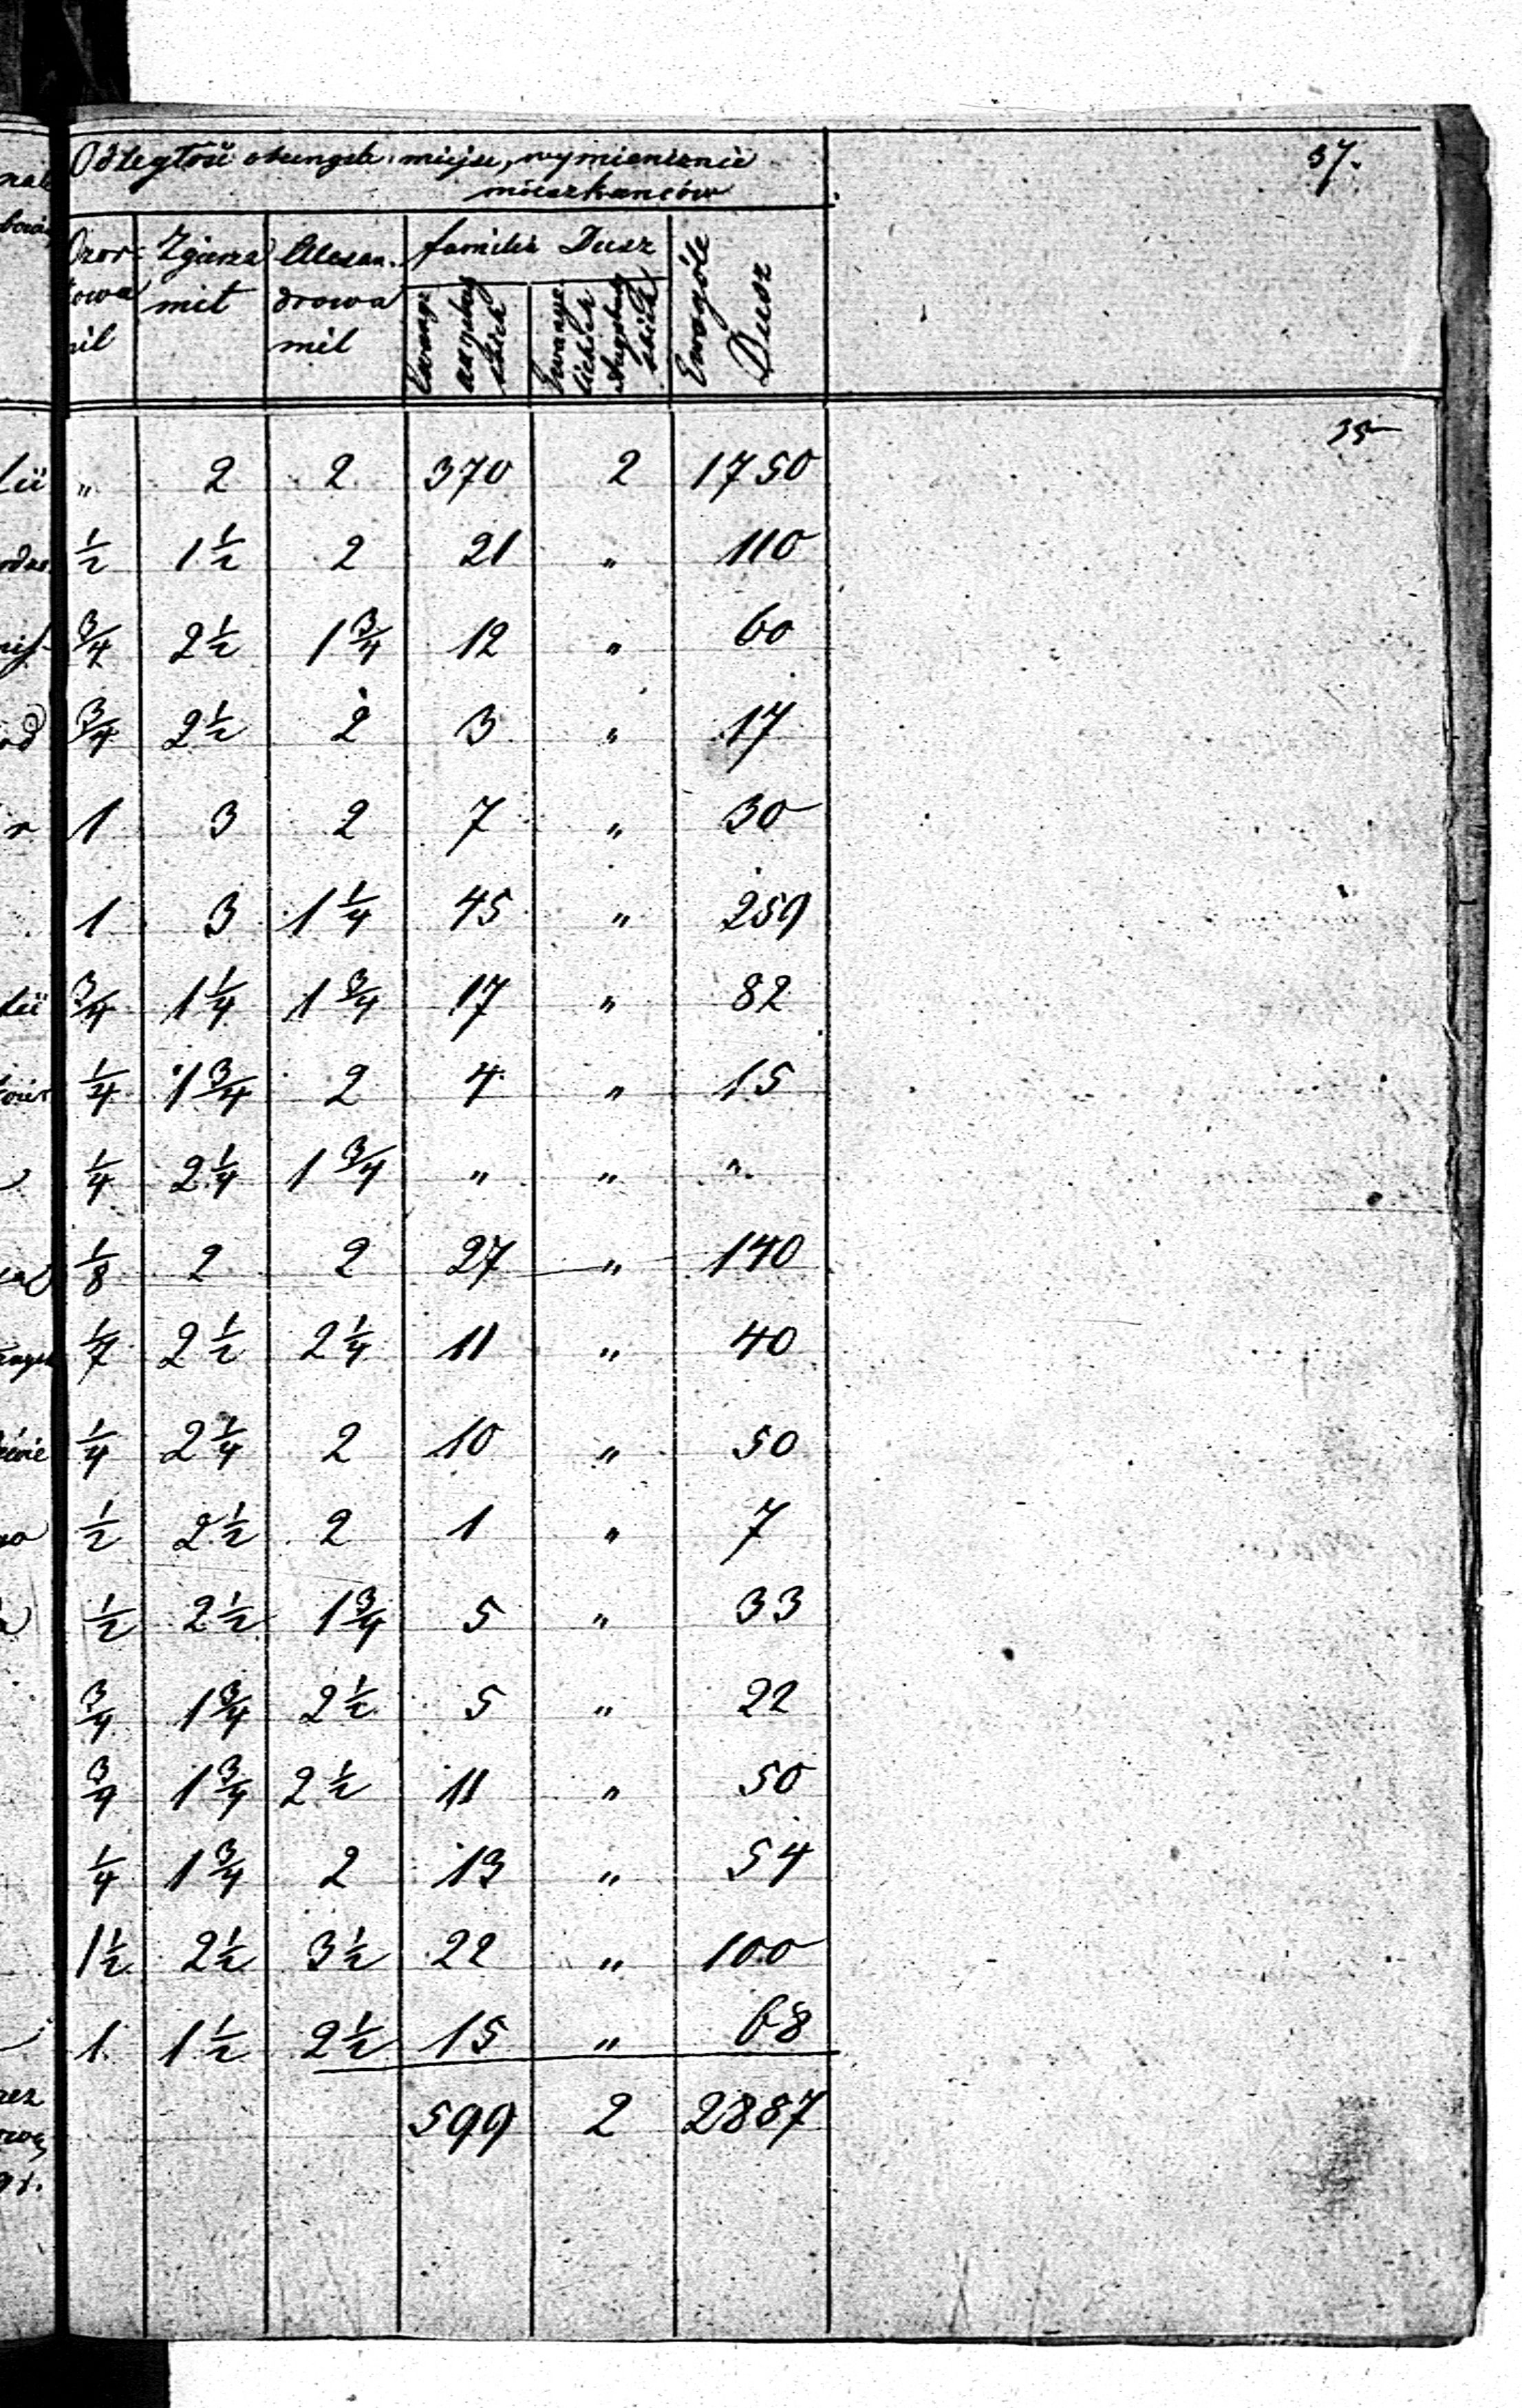 37.
Odległość obungch miejsc, wymienienie
mieszkańców
Ozor- Zgierza Alexan- familii Dusz Ewogóle Dusz
kowa mil drowa
mil mil
35
„ 2 2 370 2 1750
1/2 1 1/2 2 21 „ 110
3/4 2 1/2 1 3/4 12 „ 60
3/4 2 1/2 2 3 „ 17
1 3 2 7 „ 30
1 3 1 1/4 45 „ 259
3/4 1 1/4 1 3/4 17 „ 82
1/4 1 3/4 2 4 „ 15
1/4 2 1/4 1 3/4 „ „ „
1/8 2 2 27 „ 140
1/7 2 1/2 2 1/4 11 „ 40
1/4 2 1/4 2 10 „ 50
1/2 2 1/2 2 1 „ 7
1/2 2 1/2 1 3/4 5 „ 33
3/4 1 3/4 2 1/2 5 „ 22
3/4 1 3/4 2 1/2 11 „ 50
1/4 1 3/4 2 13 „ 54
1 1/2 2 1/2 3 1/2 22 „ 100
1 1 1/2 2 1/2 15 „ 68
599 2 2887